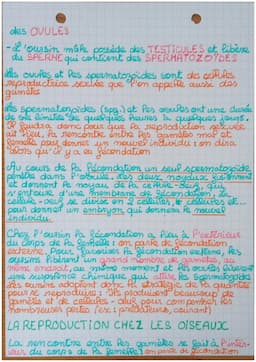 des OVULES
- L'oursin mâle possède des TESTICULES et libère
du SPERME qui contient des SPERMATOZOÏDES
Les ovules et les spermatozoïdes sont des cellules
reproductrices sexuées que l'on appelle aussi des
gamètes
Les spermatozoïdes (spz.) et les ovules ont une durée
de vie limitée de quelques heures à quelques jours.
Il faudra donc pour que la reproduction sexuée
ait lieu, la rencontre entre les gamètes mâle et
femelle pour donner un nouvel individu : on dira
alors qu'il y a eu fécondation
Au cours de la fécondation un seul spermatozoïde
pénètre dans l'ovule. Les deux noyaux fusionnent
et donnent le noyau de la cellule-oeuf, qui
s'entoure d'une membrane de fécondation. La
cellule-oeuf se divise en 2 cellules, 4 cellules et...
pour donner un embryon qui donnera le nouvel
individu.
Chez l'oursin la fécondation a lieu à l'extérieur
du corps de la femelle : on parle de fécondation
externe. Pour favoriser la fécondation externe, les
oursins libèrent un grand nombre de gamètes, au
même endroit, au même moment et les ovules libèrent
une substance chimique qui attire les spermatozoïdes
Les oursins adoptent donc la stratégie de la quantité
pour se reproduire : ils produisent beaucoup de
gamètes et de cellules-oeufs pour compenser les
nombreuses pertes (ex : prédateurs, courant)
LA REPRODUCTION CHEZ LES OISEAUX
La rencontre entre les gamètes se fait à l'intér-
ieur du corps de la femelle : on parle de fécondation